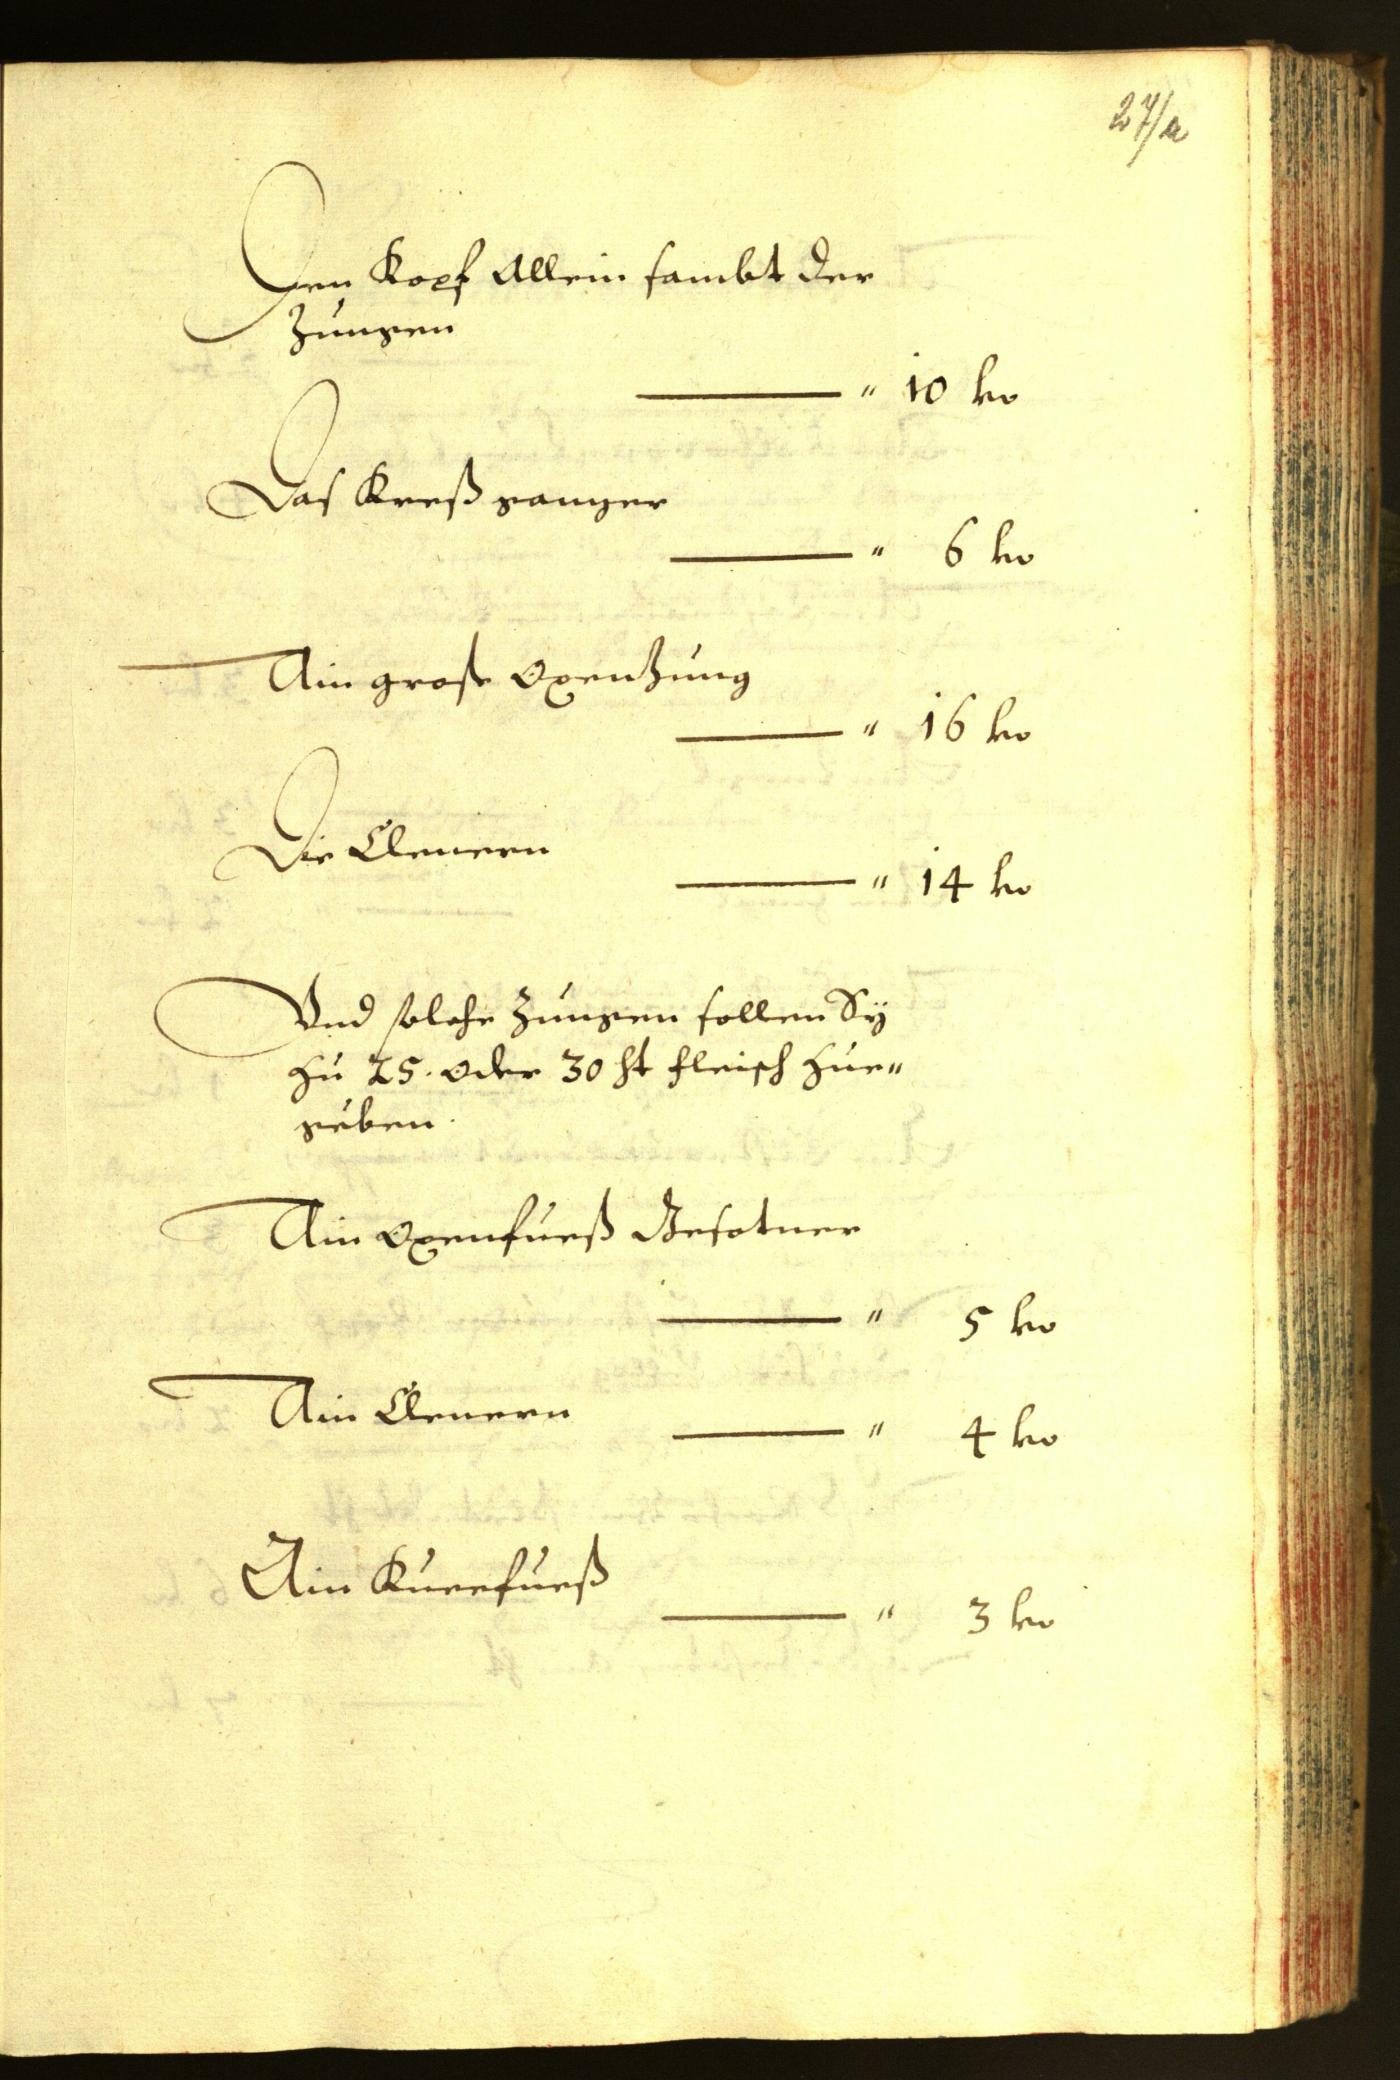 27/a
Den Kopf Allein sambt der
Zungen
" 10 kr
Das Kreß ganzer
" 6 kr
Ain große OxenZung
" 16 kr
Die Clenern
" 14 kr
Vnd solche Zungen sollen Sÿ
zu 25. oder 30 ℔ fleisch zue"
geben.
Ain Oxenfueß Gesotner
" 5 kr
Ain Clenern
" 4 kr
Ain Kuefueß
" 3 kr